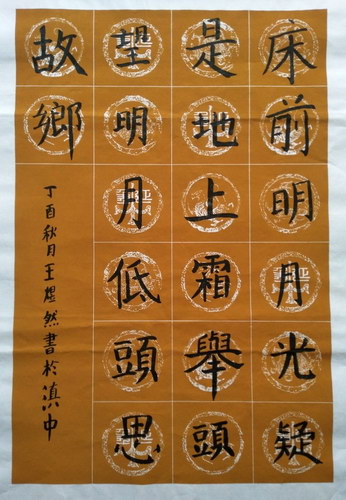 床前明月光疑
是地上霜舉頭
望明月低頭思
故鄉
丁酉秋月王然書於滇中